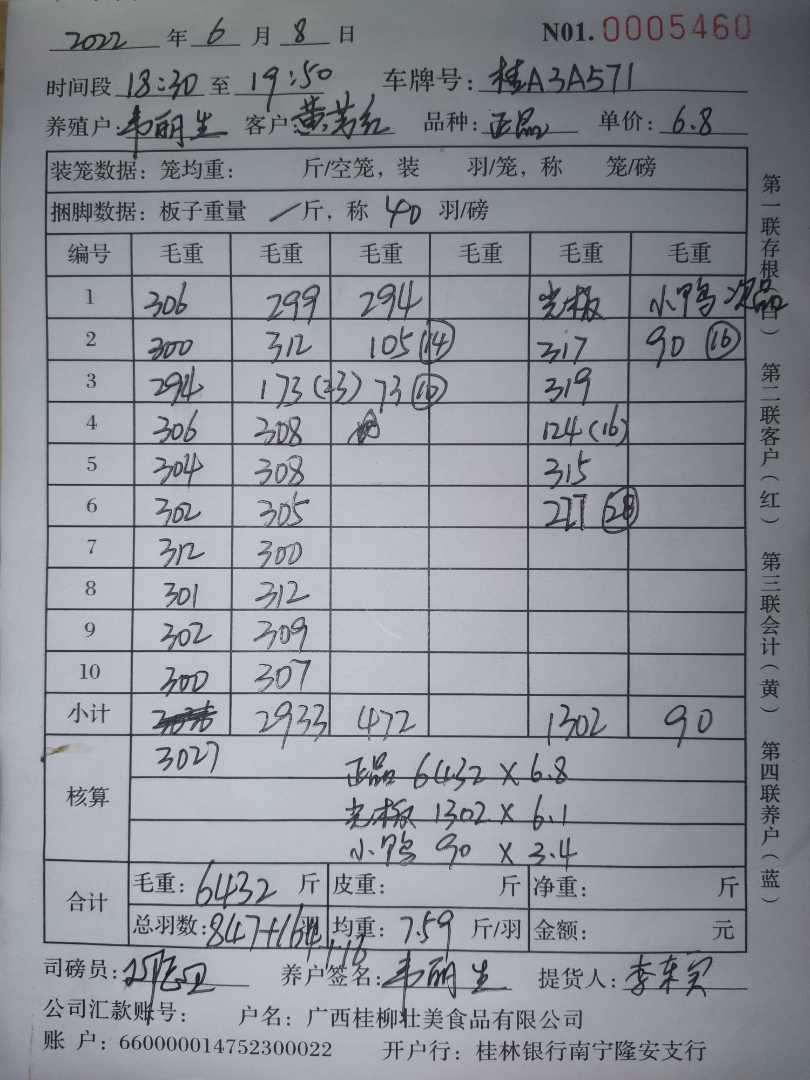 2022 年 6 月 8 日 N01. 0005460
时间段 18:30 至 19:50 车牌号: 桂A3A571
养殖户: 韦丽生 客户 黄芳红 品种: 正品 单价: 6.8
装笼数据: 笼均重: 斤/空笼, 装 羽/笼, 称 笼/磅
捆脚数据: 板子重量 / 斤, 称 40 羽/磅
编号 毛重 毛重 毛重 毛重 毛重 毛重
1 306 299 294 光板 小鸭 次品
2 300 312 105 (14) 317 90 (16)
3 294 173 (23) 73 (10) 319
4 306 308 124 (16)
5 304 308 315
6 302 305 227 (28)
7 312 300
8 301 312
9 302 309
10 300 307
小计 2933 472 1302 90
核算 3027 正品 6432 X 6.8
光板 1302 X 6.1
小鸭 90 X 3.4
合计 毛重: 6432 斤 皮重: 斤 净重: 斤
总羽数: 847+16 均重: 7.59 斤/羽 金额: 元
司磅员: 养户签名: 韦丽生 提货人:
公司汇款账号: 户名: 广西桂柳壮美食品有限公司
账 户: 660000014752300022 开户行: 桂林银行南宁隆安支行
第一联存根(白) 第二联客户(红) 第三联会计(黄) 第四联养户(蓝)